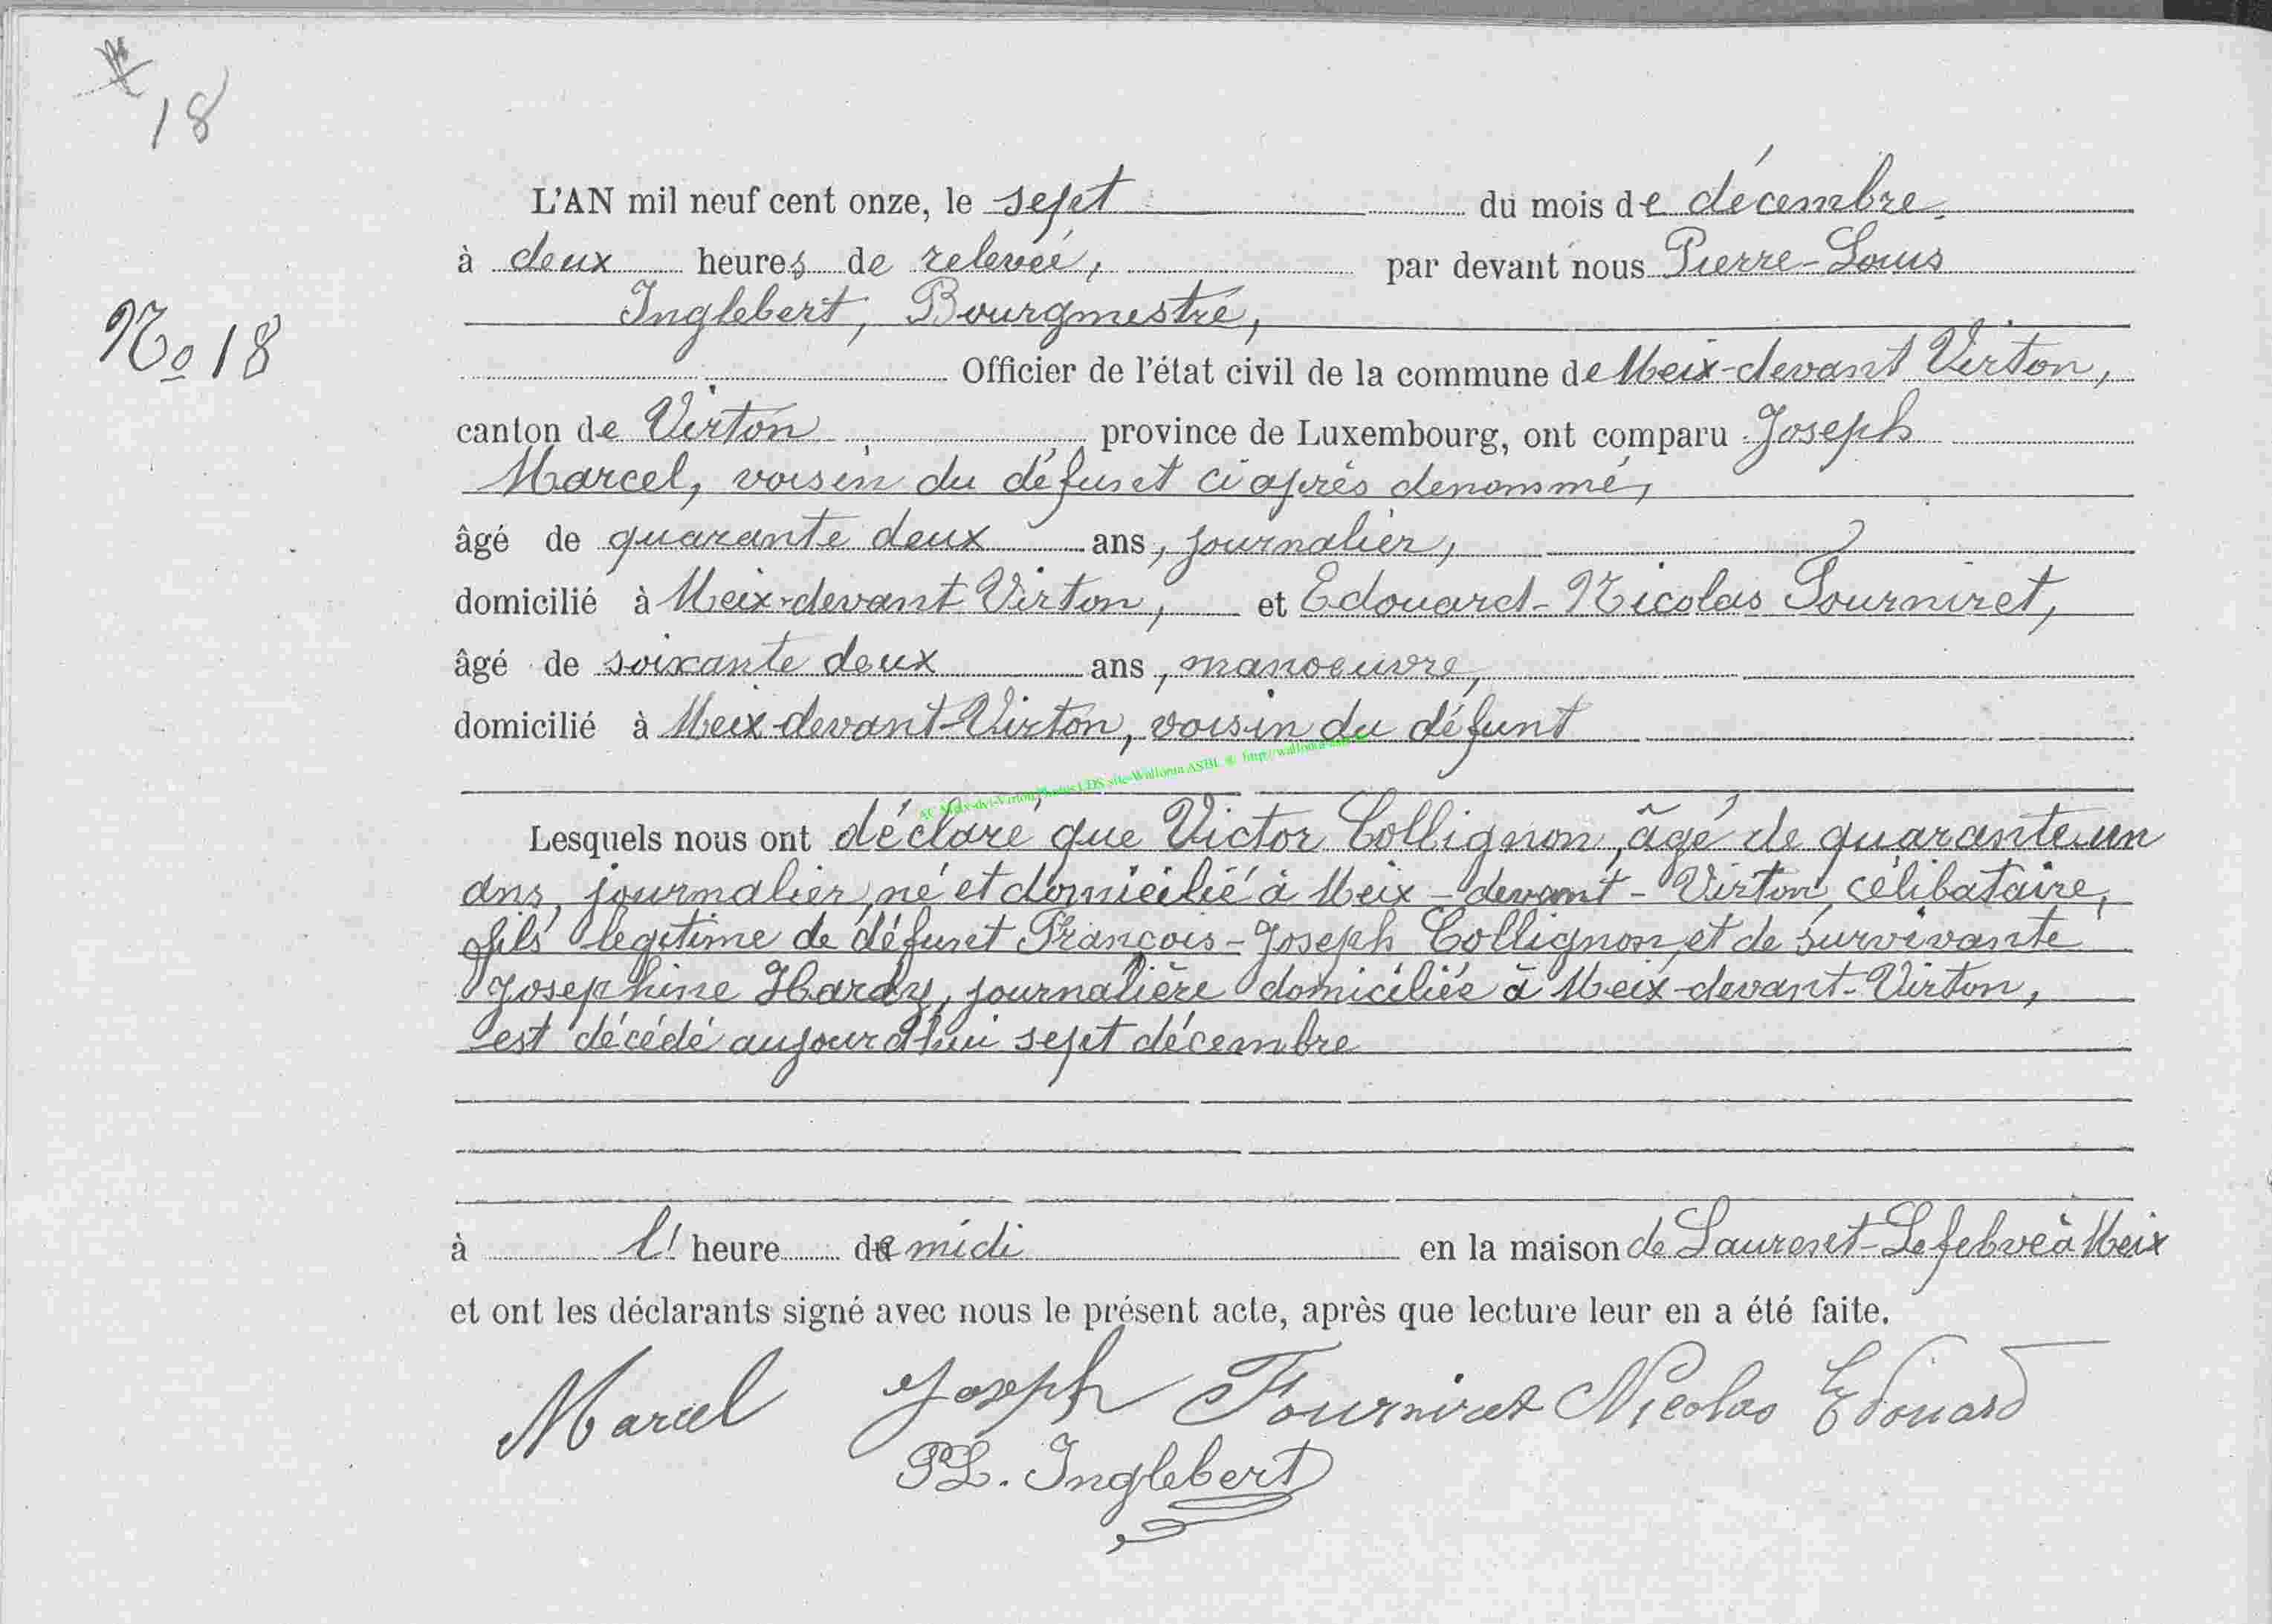 18
L'AN mil neuf cent onze, le sept du mois de décembre.
à deux heures de relevée, par devant nous Pierre-Louis
Inglebert, Bourgmestre,
No 18
Officier de l'état civil de la commune de Meix-devant Virton,
canton de Virton province de Luxembourg, ont comparu Joseph
Marcel, voisin du défunt ci après denommé,
âgé de quarante deux ans, journalier,
domicilié à Meix-devant Virton, et Edouard-Nicolas Fourniret,
âgé de soixante deux ans, manoeuvre,
domicilié à Meix-devant-Virton, voisin du défunt
Lesquels nous ont déclaré que Victor Collignon, âgé de quarante un
ans, journalier, né et domicilié à Meix-devant-Virton, célibataire,
fils légitime de défunt François-Joseph Collignon, et de survivante
Josephine Hardy, journalière domiciliée à Meix-devant-Virton,
est décédé aujourd'hui sept décembre
à l' heure de midi en la maison de Laurent-Lefebve à Meix
et ont les déclarants signé avec nous le présent acte, après que lecture leur en a été faite.
Marcel Joseph Fourniret Nicolas Edouard
PL. Inglebert